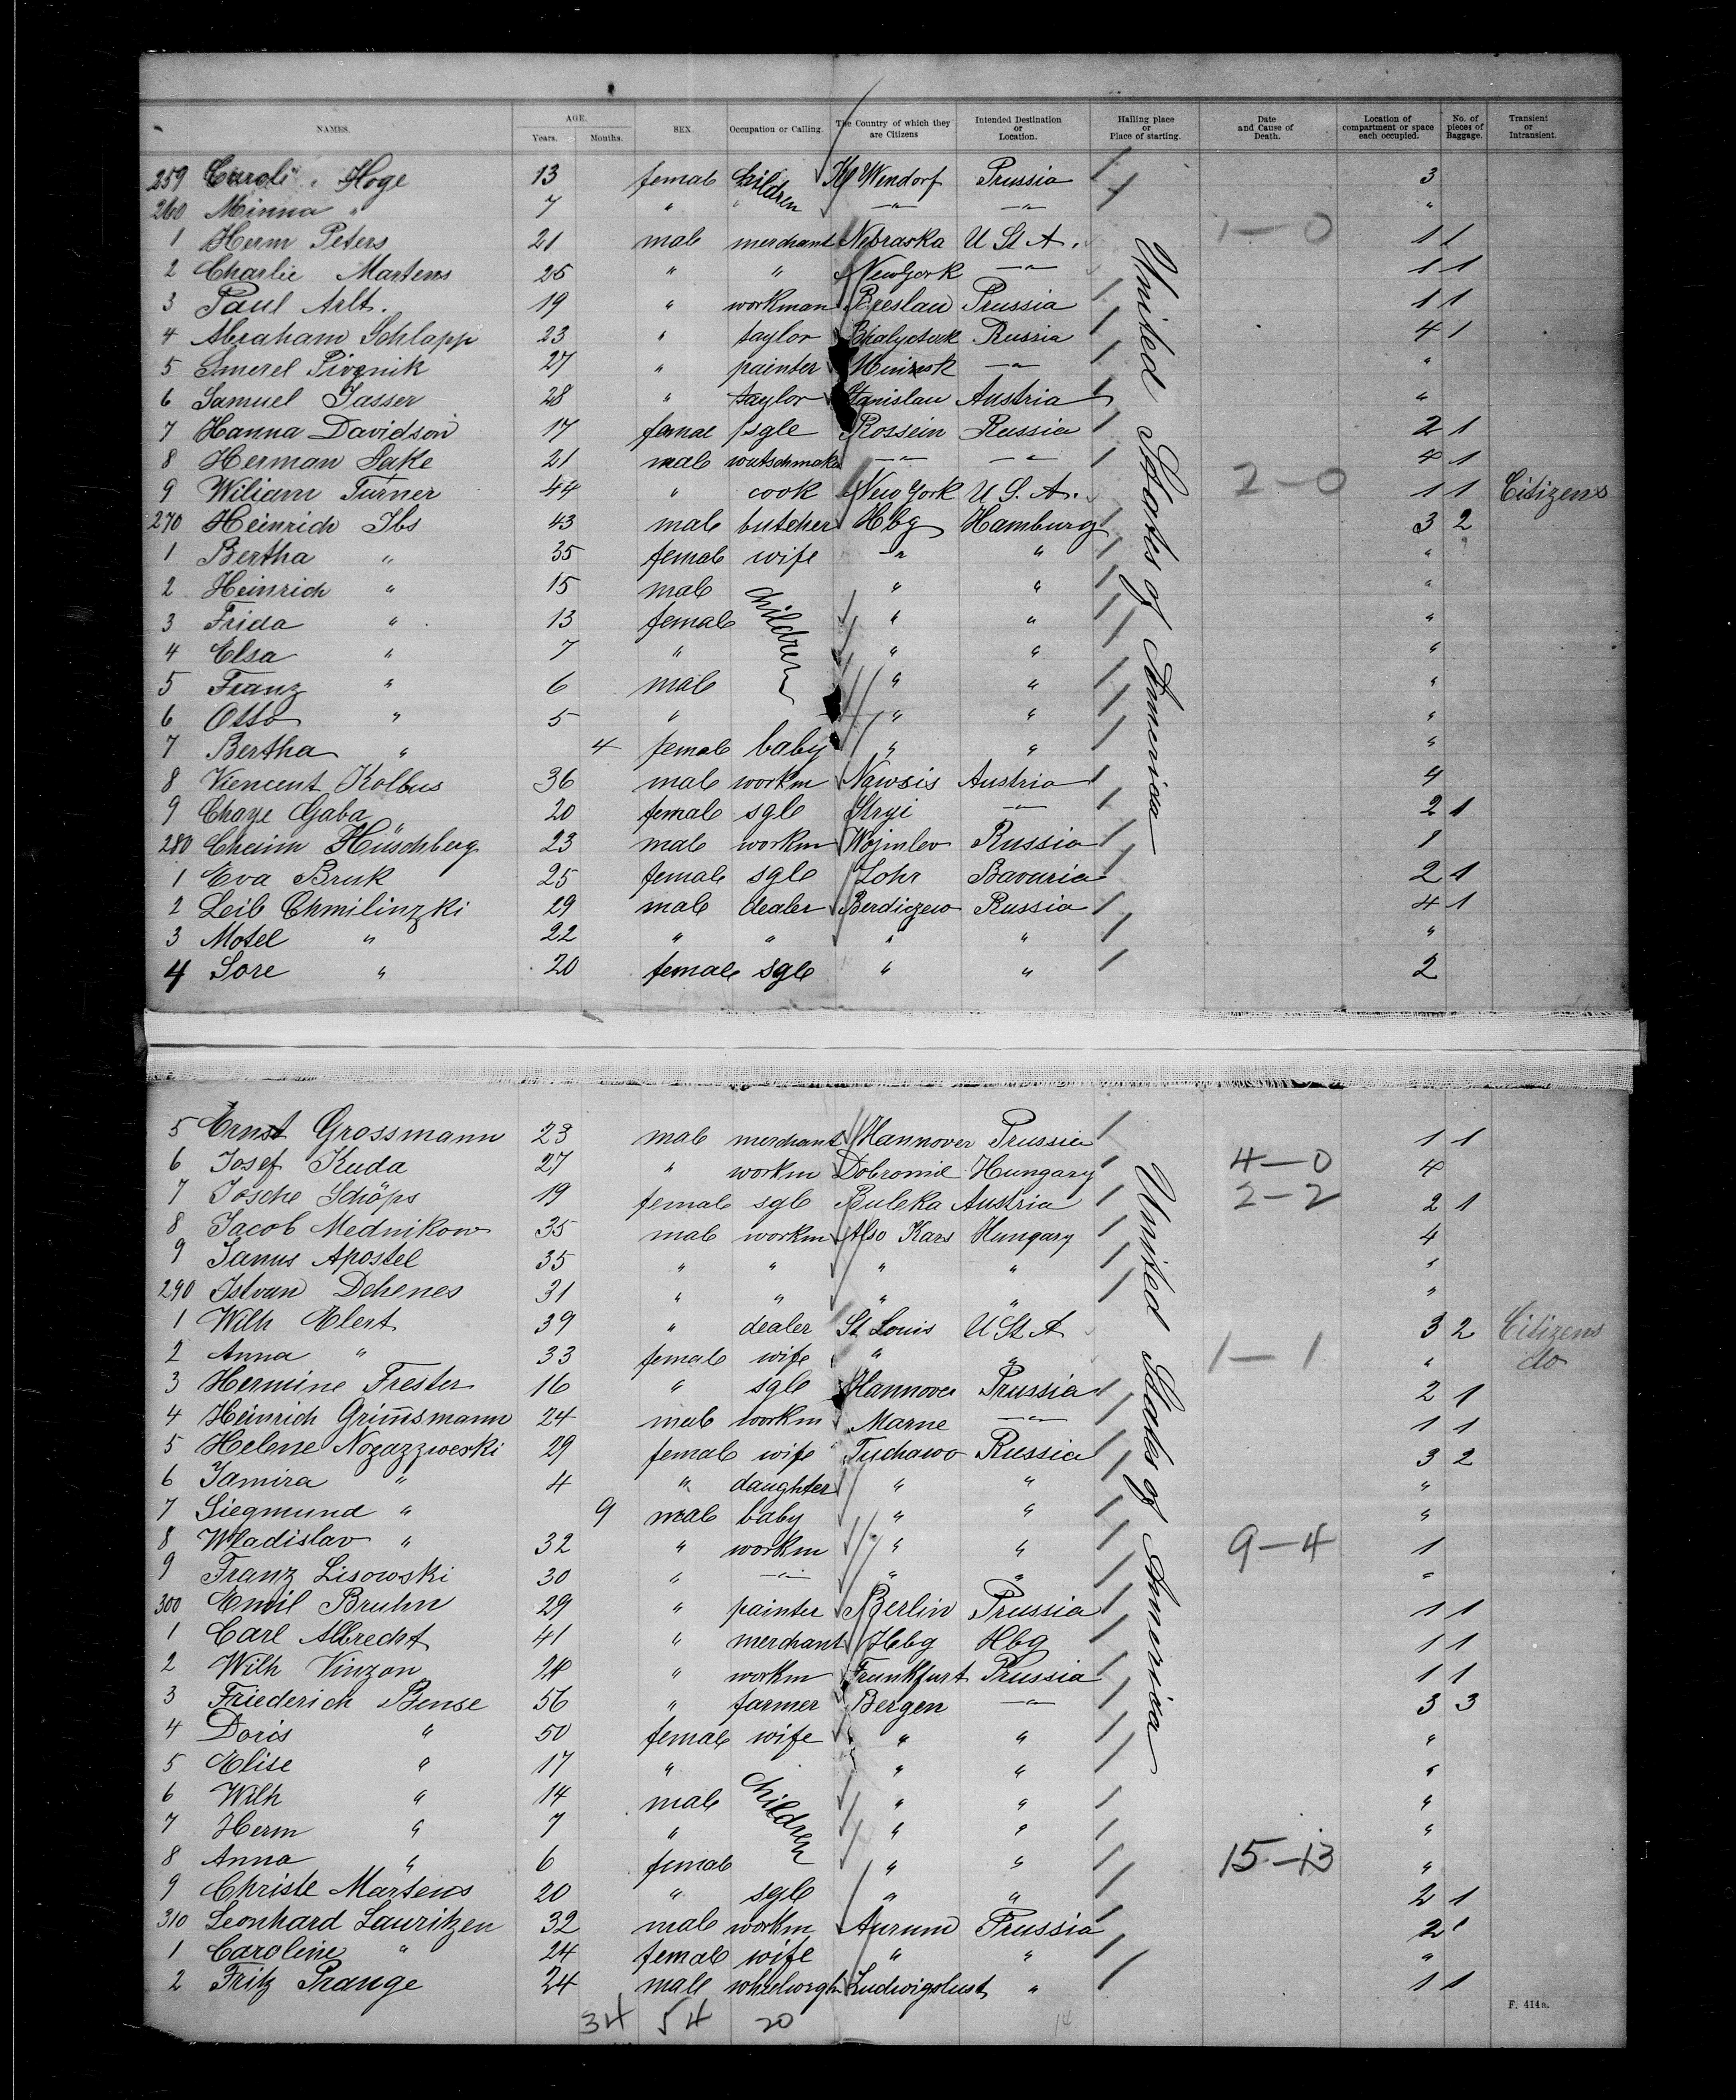 NAMES. AGE. Years. Months. SEX. Occupation or Calling. The Country of which they are Citizens Intended Destination or Location. Halling place or Place of starting. Date and Cause of Death. Location of compartment or space each occupied. No. of pieces of Baggage. Transient or Intransient.
259 Hoge 13 female children Wendorf Prussia 3
260 Minna " 7 " " —"— —"— "
1 Herm Peters 21 male merchant Nebraska U St A. 1—0 1 1
2 Charlie Martens 25 " " New York —"— 1 1
3 Paul Arlt. 19 " workman Breslau Prussia 1 1
4 Abraham Schlapp 23 " taylor Russia 4 1
5 Smerel Pivgnik 27 " painter —"— "
6 Samuel Jasser 28 " taylor Stanislau Austria "
7 Hanna Davidson 17 female sgle Rossein Russia 2 1
8 Herman Sake 21 male watschmaker —"— —"— 4 1
9 Wiliam Turner 44 " cook New York U S. A. 2—0 1 1 Citizens
270 Heinrich Ibs 43 male butcher Hbg Hamburg 3 2
1 Bertha " 35 female wife —"— " "
2 Heinrich " 15 male children " " "
3 Frida " 13 female " " "
4 Elsa " 7 " " " "
5 Franz " 6 male " " "
6 Otto " 5 " " " "
7 Bertha " 4 female baby " " "
8 Viencent Kolbus 36 male workm Nawsis Austria 4
9 Chaye Gaba 20 female sgle Stryi —"— 2 1
280 Chaim Hüschberg 23 male workm Wojmlew Russia 1
1 Eva Bruk 25 female sgle Lohr Bavaria 2 1
2 Leib Chmilinzki 29 male dealer Berdiczew Russia 4 1
3 Motel " 22 " " " " "
4 Sore " 20 female sgle " " 2
United States of America
5 Ernst Grossmann 23 male merchant Hannover Prussia 1 1
6 Josef Kuda 27 " workm Dobromil Hungary 4—0 4
7 Josche Schöps 19 female sgle Buleka Austria 2—2 2 1
8 Jacob Mednikow 35 male workm Also Kars Hungary 4
9 Janus Apostel 35 " " " " "
290 Istvan Dehenes 31 " " " " "
1 Wilh Elert 39 " dealer St Louis U St A 3 2 Citizens
2 Anna " 33 female wife " " 1—1 " do
3 Hermine Frester 16 " sgle Hannover Prussia 2 1
4 Heinrich Grimsmann 24 male workm Marne —"— 1 1
5 Helene Nogazzweski 29 female wife Tuchawo Russia 3 2
6 Jamira " 4 " daughter " " "
7 Siegmund " 9 male baby " " "
8 Wladislav " 32 " workm " " 9—4 1
9 Franz Lisowski 30 " —"— " " "
300 Emil Bruhn 29 " painter Berlin Prussia 1 1
1 Carl Albrecht 41 " merchant Hbg Hbg 1 1
2 Wilh Vinzon 24 " workm Frankfurt Prussia 1 1
3 Friederich Bense 56 " farmer Bergen —"— 3 3
4 Doris " 50 female wife " " "
5 Elise " 17 " children " " "
6 Wilh " 14 male " " "
7 Herm " 7 " " " "
8 Anna " 6 female " " 15—13 "
9 Christe Martens 20 " sgle " " 2 1
310 Leonhard Lauritzen 32 male workm Aurum Prussia 2 1
1 Caroline " 24 female wife " " "
2 Fritz Prange 24 male Ludwigslust " 1 1
United States of America
34 54 20 14
F. 414a.